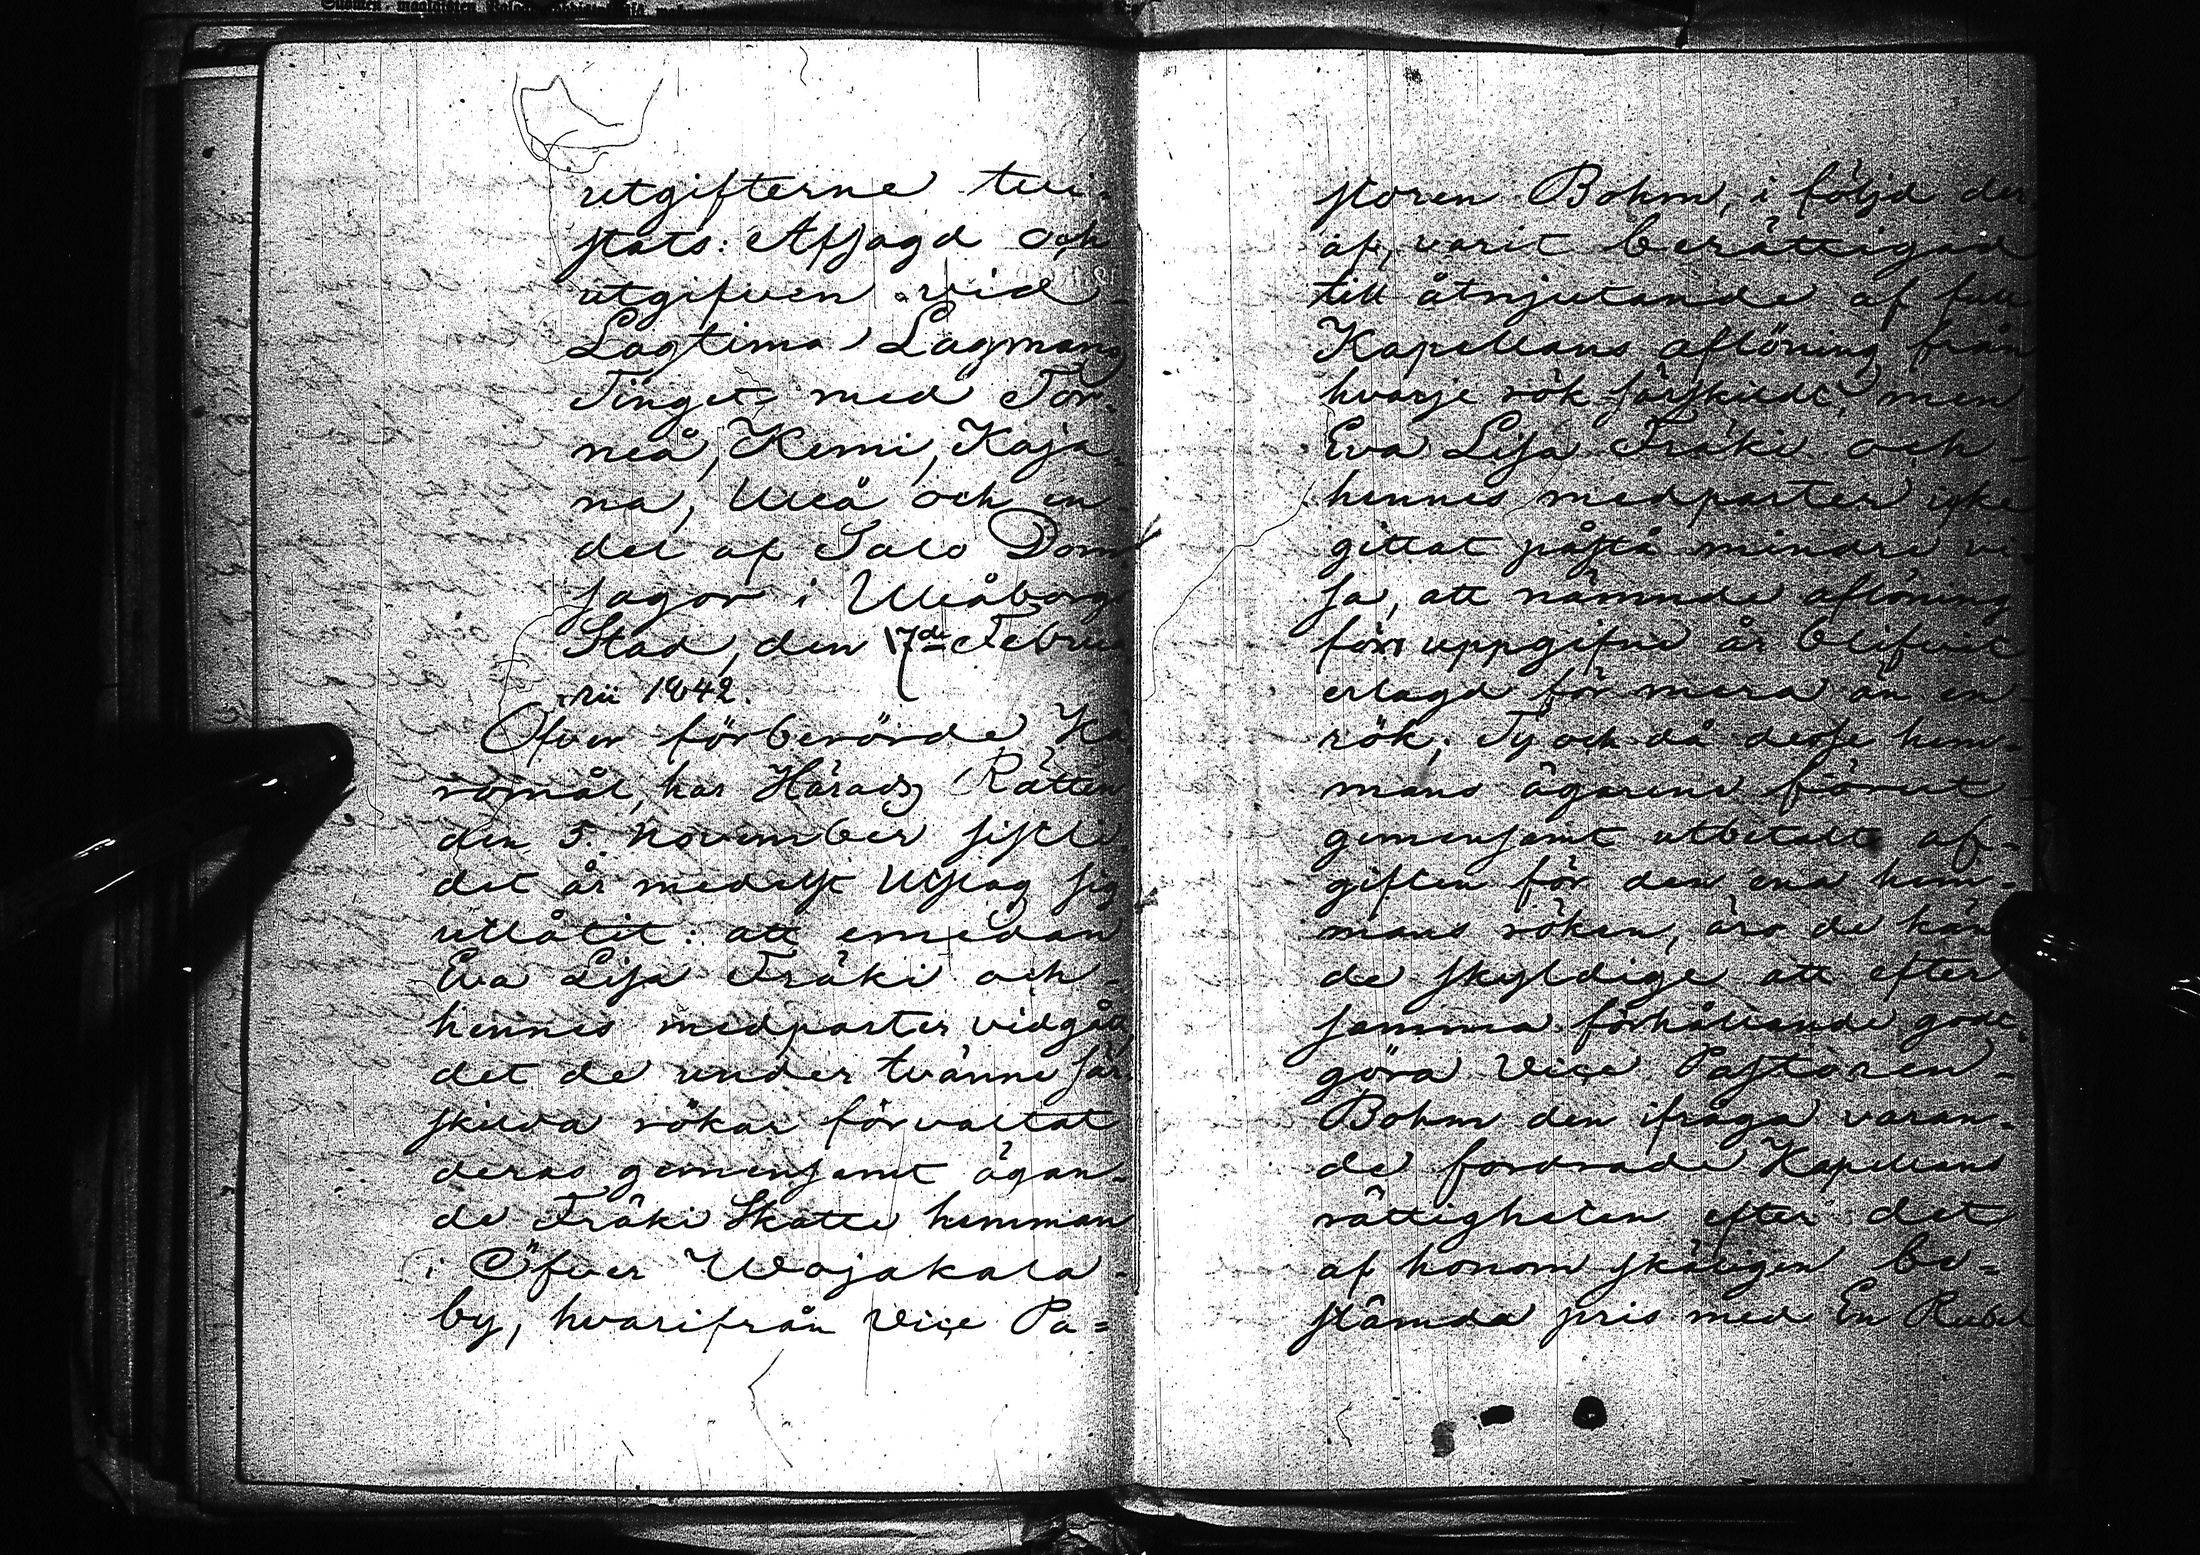 utgifterne tvi-
stats: Afsagd och
utgifven vid
Lagtima Lagmans
Tinget med Tor-
neå, Kemi, Kaja-
na, Uleå och en
del af Salo Dom-
sagor i Uleåborgs
Stad, den 17de Februa-
rii 1842.
Öfver förberörde Kä-
romål, har Härads Rätten
den 5. November sistli-
det år medelst Utslag sig
utlåtit: att emedan
Eva Lisa Träki och
hennes medparter vidgått
det de under tvänne sär-
skilda rökar förvaltat
deras gemensamt ägan-
de Träki Skatte hemman
i Öfver Wojakala
by, hvarifrån Vice Pa-
storen Bohm, i följd der
af, varit berättigad
till åtnjutande af full
Kapellans aflöning från
hvarje rök särskildt, men
Eva Lisa Träki och
hennes medparter icke
gittat påstå mindre vi-
sa, att nämnde aflöning
förr uppgifne år blifvit
erlagd för mera än en
rök; Ty och då desse hem-
mans ägarene förut
gemensamt utbetalt af-
giften för den ena hem-
mans röken, äro de kän-
de skyldige att efter
samma förhållande godt-
göra Vice Pastoren
Bohm den ifråga varan-
de fordrade Kapellans
rättigheten efter det
af honom skäligen be-
stämda pris med En Rubel